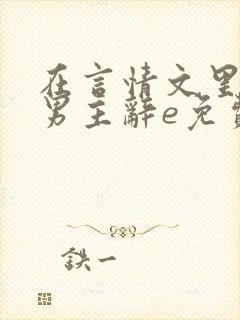 在言情文里
男主辭e免費
鉄一